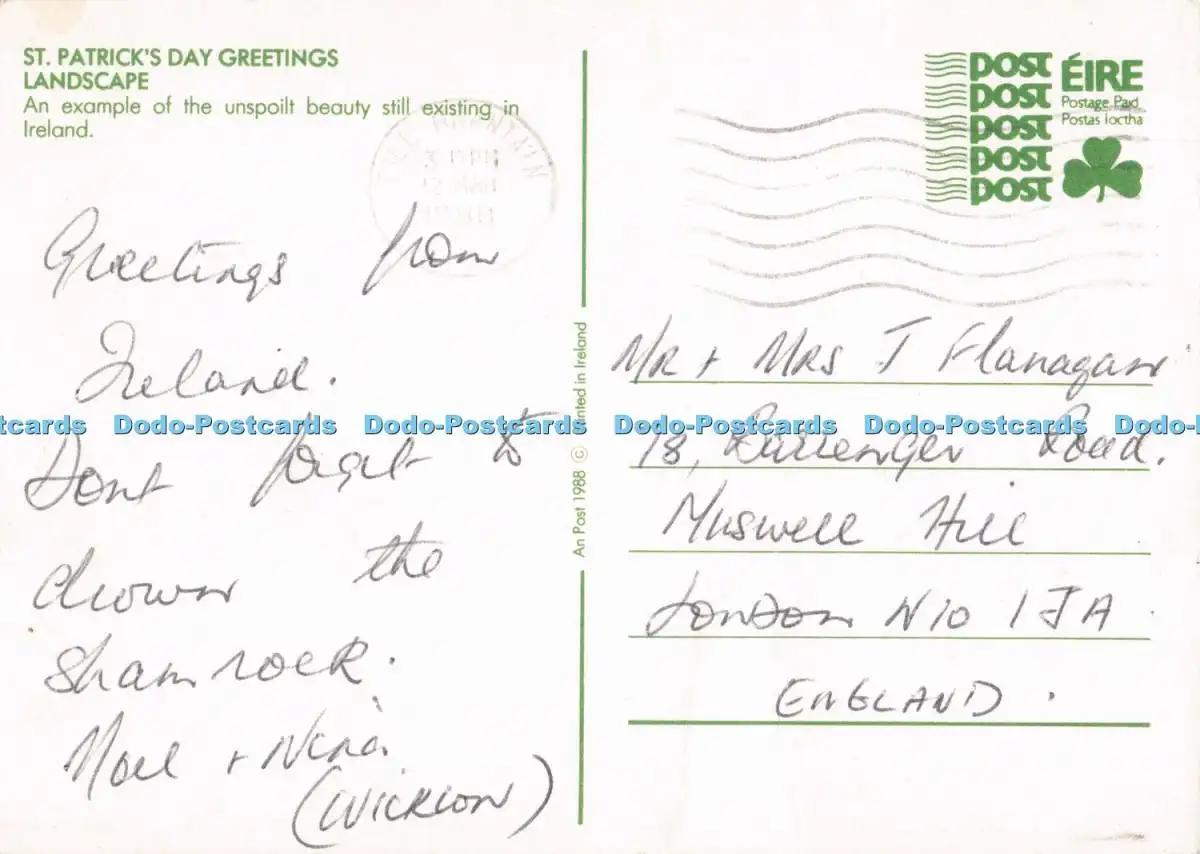 ST. PATRICK'S DAY GREETINGS
LANDSCAPE
An example of the unspoilt beauty still existing in
Ireland.
Greetings from
Ireland.
Dont forget to
drown the
shamrock.
Noel + Nina
(WICKLOW)
An Post 1988 © Printed in Ireland
POST
POST
POST
POST
POST
ÉIRE
Postage Paid
Postas Íoctha
12 MAR
MR + MRS J Flanagan
18, Road.
Muswell Hill
London N10 1JA
ENGLAND.
Dodo-Postcards Dodo-Postcards Dodo-Postcards Dodo-Postcards Dodo-Postcards